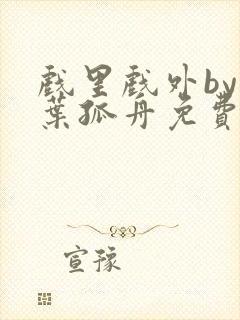 戲里戲外by
葉孤舟免費
宣豫